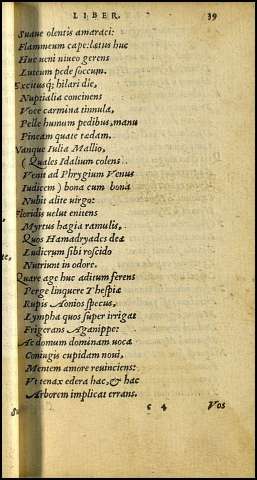 LIBER. 39
Suaue olentis amaraci:
Flammeum cape: lætus huc
Huc ueni niueo gerens
Luteum pede soccum.
Excitusq; hilari die,
Nuptialia concinens
Voce carmina tinnula,
Pelle humum pedibus, manu
Pineam quate tædam.
Nanque Iulia Mallio,
(Quales Idalium colens
Venit ad Phrygium Venus
Iudicem) bona cum bona
Nubit alite uirgo:
Floridis uelut enitens
Myrtus hagia ramulis,
Quos Hamadryades deæ
Ludicrum sibi roscido
Nutriunt in odore.
Quare age huc aditum ferens
Perge linquere Thespiæ
Rupis Aonios specus,
Lympha quos super irrigat
Frigerans Aganippe:
Ac domum dominam uoca
Coniugis cupidam noui,
Mentem amore reuinciens:
Vt tenax edera hac, & hac
Arborem implicat errans.
c 4 Vos